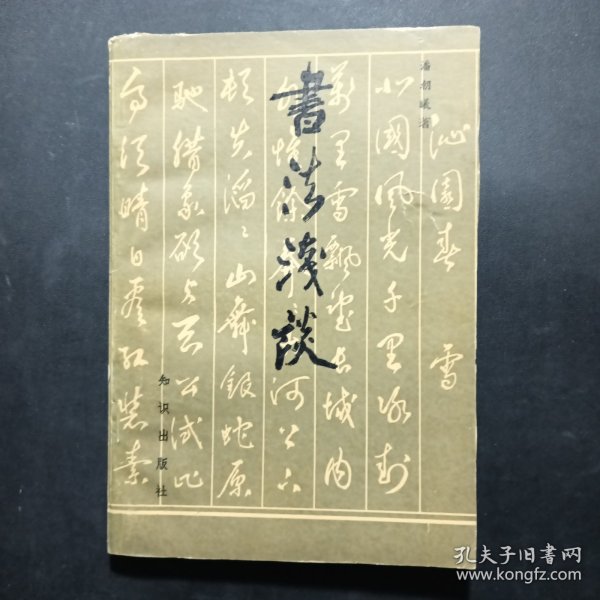 潘朝曦著
書法淺談
沁園春 雪
北國风光千里冰封
萬里雪飄望长城内
外惟餘莽 河上下
顿失滔滔山舞銀蛇原
驰腊象欲与天公试比
高须晴日看红装素
知识出版社
孔夫子旧书网
www.kongfz.com